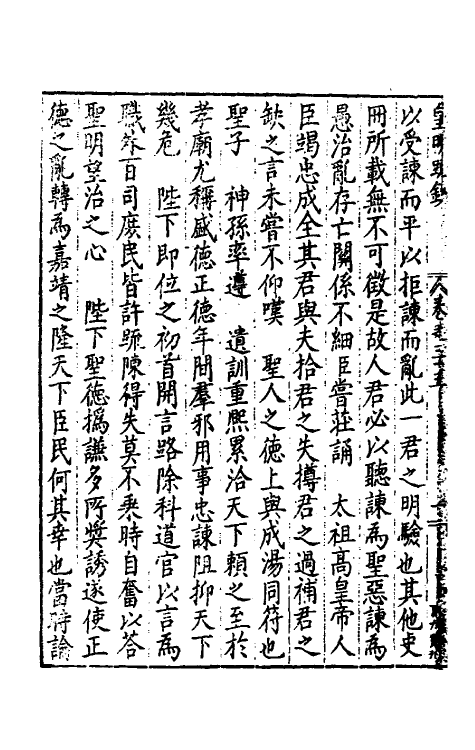 皇明疏鈔
以受諫而平以拒諫而亂此一君之明驗也其他史
冊所載無不可徵是故人君必以聽諫為聖惡諫為
愚治亂存亡關係不細臣嘗莊誦　太祖高皇帝人
臣竭忠成全其君與夫拾君之失撙君之過補君之
缺之言未嘗不仰嘆　聖人之德上與成湯同符也
聖子　神孫率遵　遺訓重熙累洽天下賴之至於
孝廟尤稱盛德正德年間羣邪用事忠諫阻抑天下
幾危　陛下即位之初首開言路除科道官以言為
職外百司庶民皆許疏陳得失莫不乗時自奮以答
聖明望治之心　陛下聖德撝謙多所奬誘遂使正
德之亂轉為嘉靖之隆天下臣民何其幸也當時論